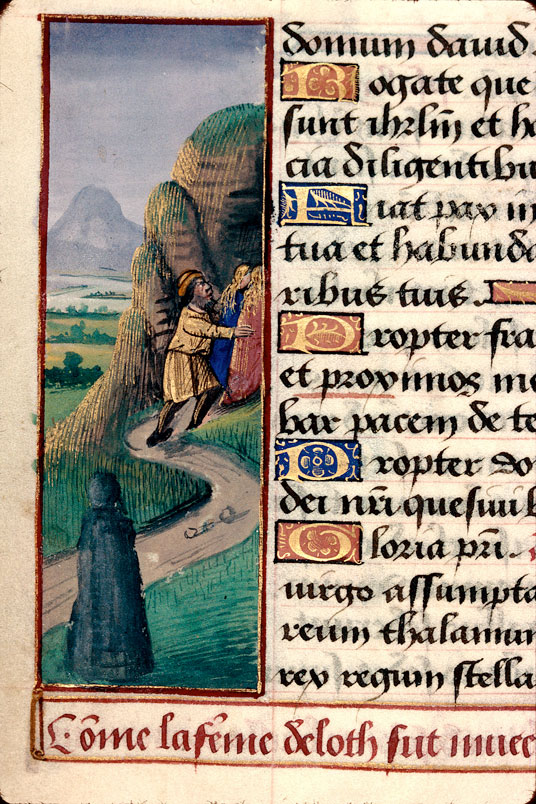 domum dauid.
Rogate que
sunt ihrlm̄ et ha
cia diligentibu
Fiat pax in
tua et habunda
ribus tuis.
Propter fra
et proximos me
bar pacem de te
Propter do
dei nr̄i quesiui b
Gloria pr̄i.
uirgo assumpta
reum thalamum
rex regum stella
Cōme la fēme de loth fut muee